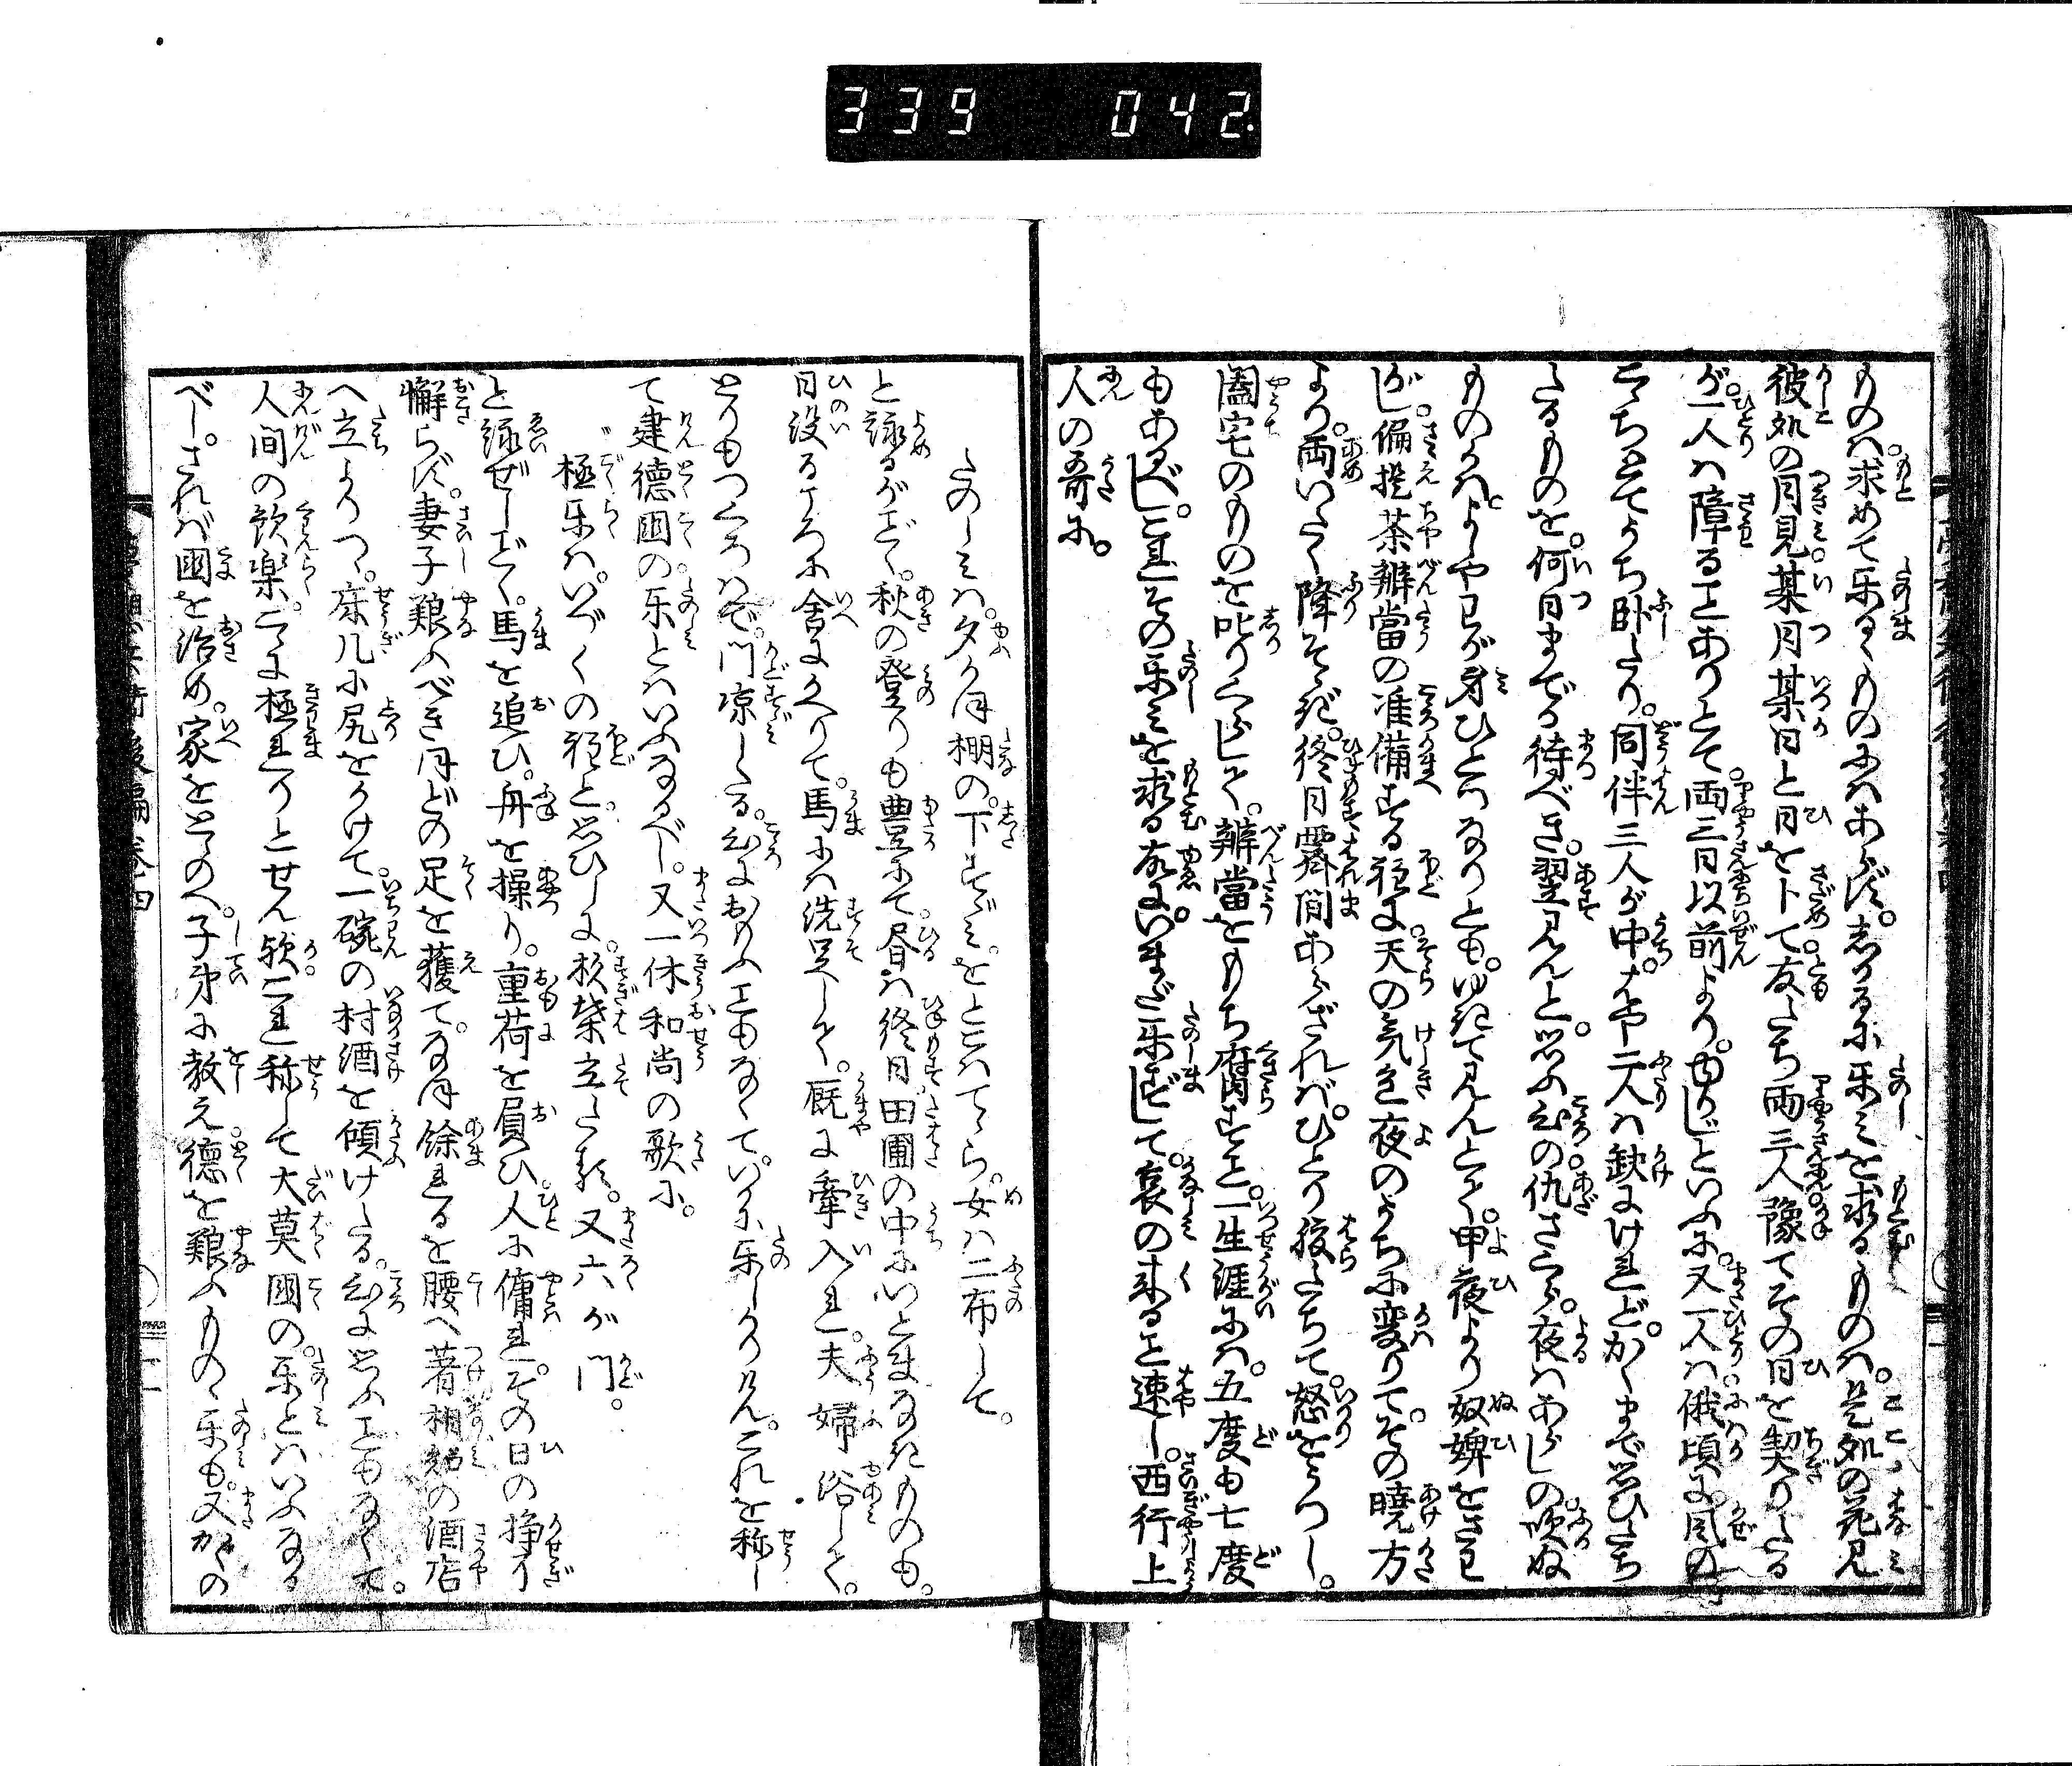 339 042.
ものは。求めて楽むものにはあらず。しかるに楽みを求るものは。是処の花見
彼処の月見。某月某日と日を卜て。友たち両三人。豫てその日を契りたる
が。一人は障ることありとて。両三日以前より。ゆかじといふに。又一人は。俄頃に風の
こゝちとてうち臥たり。同伴三人が中。はや二人は缺にけれど。かくまで思ひたち
たるものを。何日までか待べき。翌見んと。思ふ心の仇さくら。夜はあらしの吹ぬ
ものかは。よしやわが身ひとつなりとも。ゆきて見んとて。甲夜より奴婢をさわ
がし。偏提茶辨當の准備する程に。天の気色夜のうちに変りて。その暁方
より。雨いたく降そゝぎ。終日霽間あらざれば。ひとり腹たちて。怒をうつし。
闔宅のものを叱りくらして。辨當をもち腐すこと。一生涯には。五度も七度
もあるべし。これその楽みを求る故に。いまだ楽ずして。哀の来ること速し。西行上
人の哥に。
たのしみは。夕がほ棚の。下すゞみ。をとこはてゝら。女は二布して。
と詠るがごとく。秋の登りも豊にて。昼は終日田圃の中にいとまなきものも。
日没るころに舎にかへりて。馬には洗足して。厩に牽入れ。夫婦浴して。
とりもつくろはで。門凉したる。心におもふこともなくて。いかに楽しかりけん。これを称し
て建徳国の。楽とはいふなるべし。又一休和尚の歌に。
極楽は。いづくの程と。思ひしに。杉葉立たる。又六が門。
と詠ぜしごとく。馬を追ひ。舟を操り。重荷を負ひ。人に傭れ。その日の挣ぎ
懈らず。妻子養ふべきほどの足を獲て。なほ餘れるを腰へ著。相知の酒店
へ立よりつ。床几に尻をかけて。一碗の村酒を傾けたる。心に思ふこともなくて。
人間の歓楽。こゝに極れりとせん歟。これ称して大莫國の。楽とはいふなる
べし。されば國を治め。家をとゝのへ。子弟に教え徳を養ふものゝ楽も。又かくの